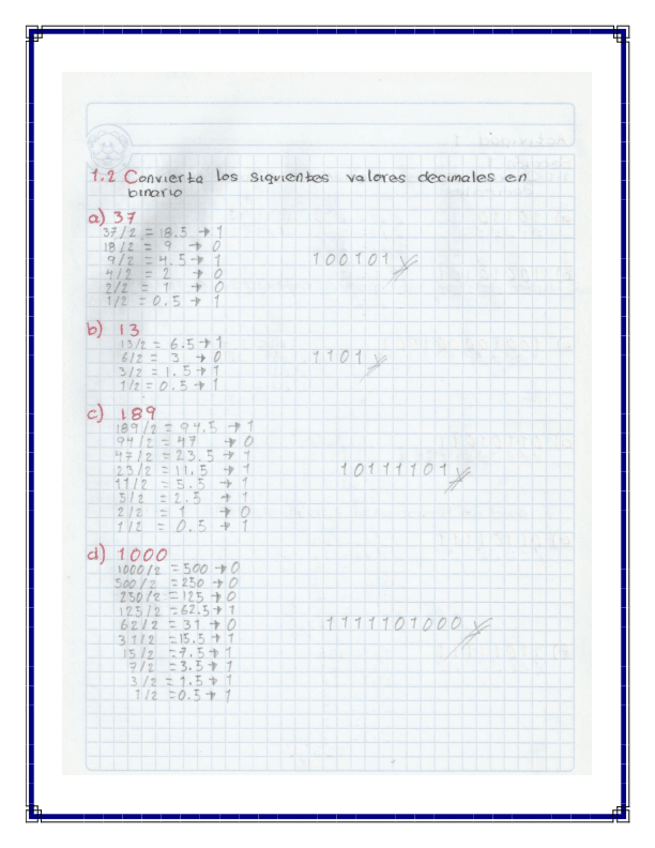 1.2 Convierta los siguientes valores decimales en
binario
a) 37
37/2 = 18.5 → 1
18/2 = 9 → 0
9/2 = 4.5 → 1
4/2 = 2 → 0
2/2 = 1 → 0
1/2 = 0.5 → 1
100101
b) 13
13/2 = 6.5 → 1
6/2 = 3 → 0
3/2 = 1.5 → 1
1/2 = 0.5 → 1
1101
c) 189
189/2 = 94.5 → 1
94/2 = 47 → 0
47/2 = 23.5 → 1
23/2 = 11.5 → 1
11/2 = 5.5 → 1
5/2 = 2.5 → 1
2/2 = 1 → 0
1/2 = 0.5 → 1
10111101
d) 1000
1000/2 = 500 → 0
500/2 = 250 → 0
250/2 = 125 → 0
125/2 = 62.5 → 1
62/2 = 31 → 0
31/2 = 15.5 → 1
15/2 = 7.5 → 1
7/2 = 3.5 → 1
3/2 = 1.5 → 1
1/2 = 0.5 → 1
1111101000